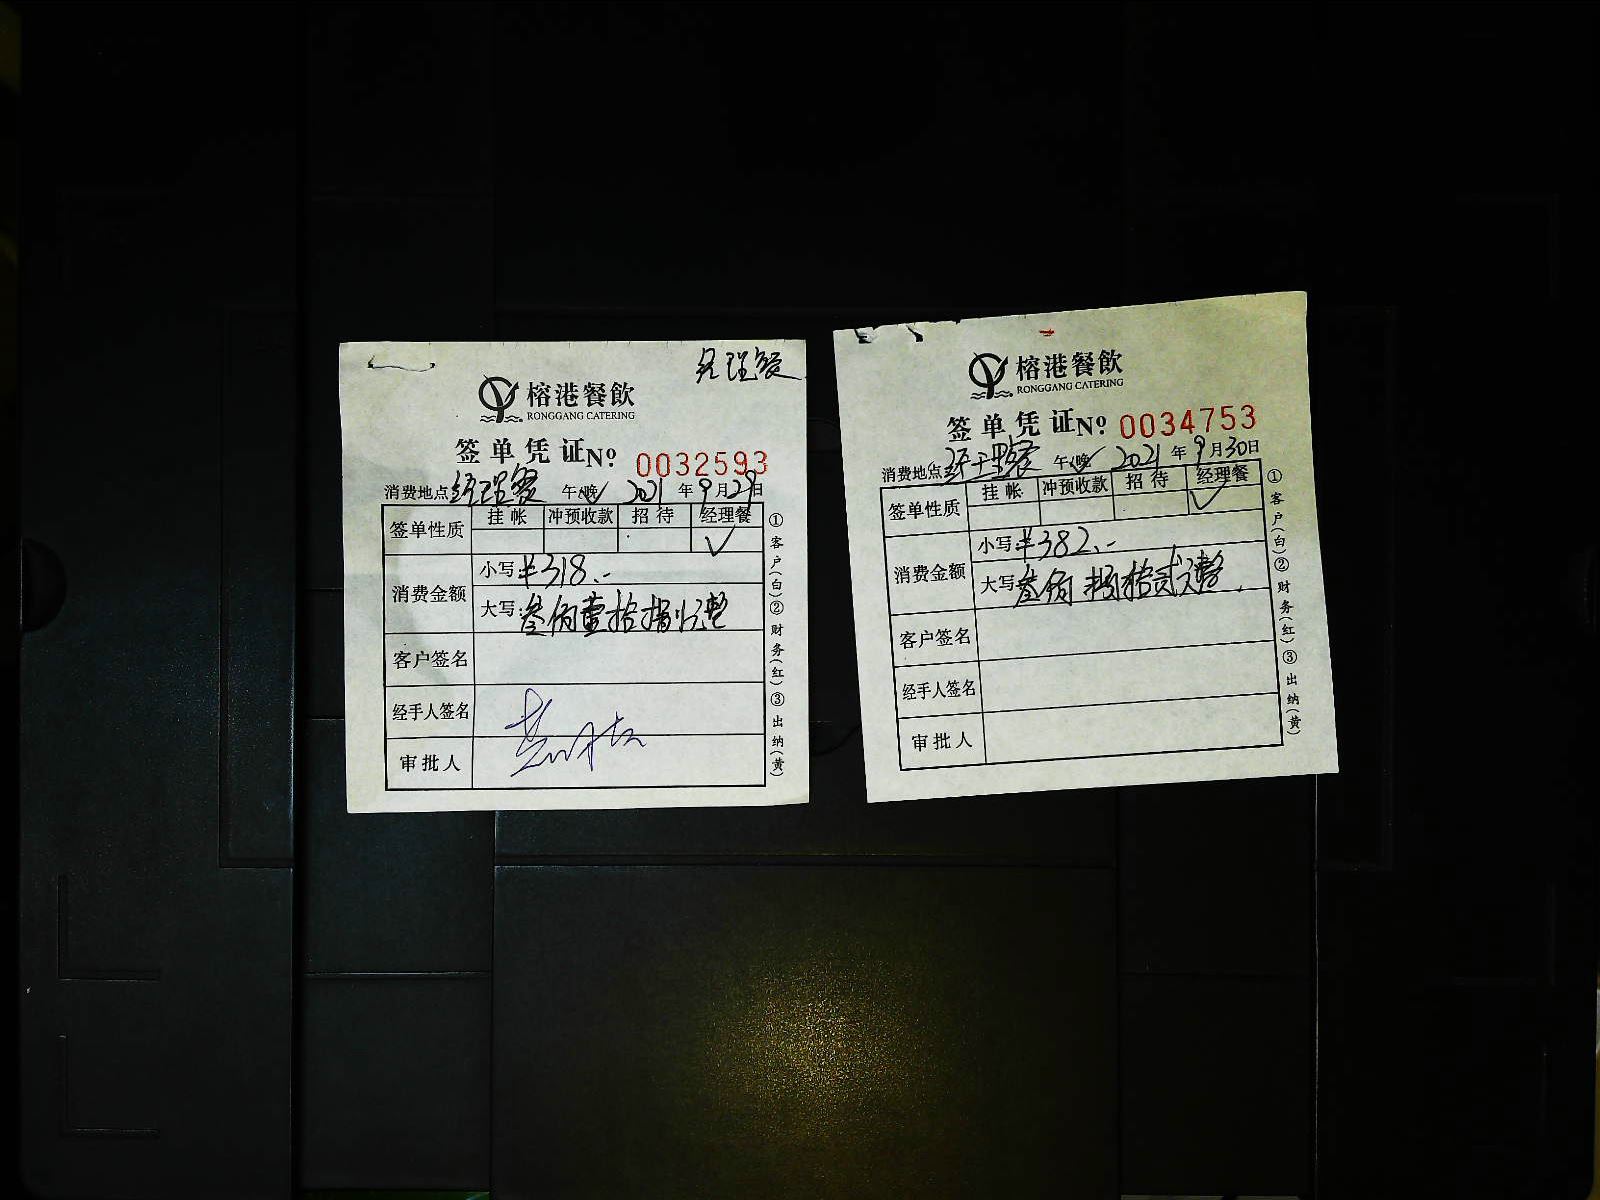 经理餐
榕港餐飲
RONGGANG CATERING
签单凭证 Nº 0032593
消费地点 经理餐 午(晚)✓ 2021年9月29日
签单性质 挂帐 冲预收款 招待 经理餐
✓
消费金额 小写:¥318.-
大写:叁佰壹拾捌元整
客户签名
经手人签名
审批人
①客户(白)②财务(红)③出纳(黄)
榕港餐飲
RONGGANG CATERING
签单凭证 Nº 0034753
消费地点 经理餐 午(晚)✓ 2021年9月30日
签单性质 挂帐 冲预收款 招待 经理餐
✓
消费金额 小写:¥382.-
大写:叁佰捌拾贰元整
客户签名
经手人签名
审批人
①客户(白)②财务(红)③出纳(黄)